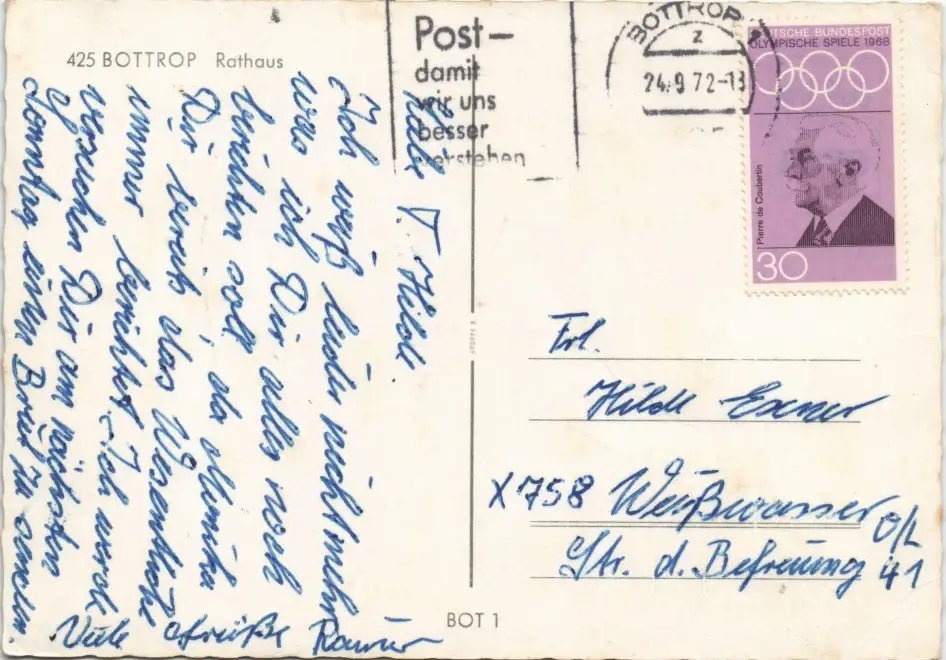 425 BOTTROP Rathaus
Post—
damit
wir uns
besser
verstehen
BOTTROP
z
24.9.72-13
DEUTSCHE BUNDESPOST
OLYMPISCHE SPIELE 1968
Pierre de Coubertin
30
Hilde
Ich weiß leider nicht mehr
was ich Dir alles noch
berichten soll, da Monika
Dir bereits das Wesentliche
immer berichtet. Ich werde
versuchen Dir am nächsten
Sonntag einen Brief zu
Viele Grüße Rainer
Frl.
Hilde Exner
X758 Weißwasser O/L
Str. d. Befreiung 41
BOT 1